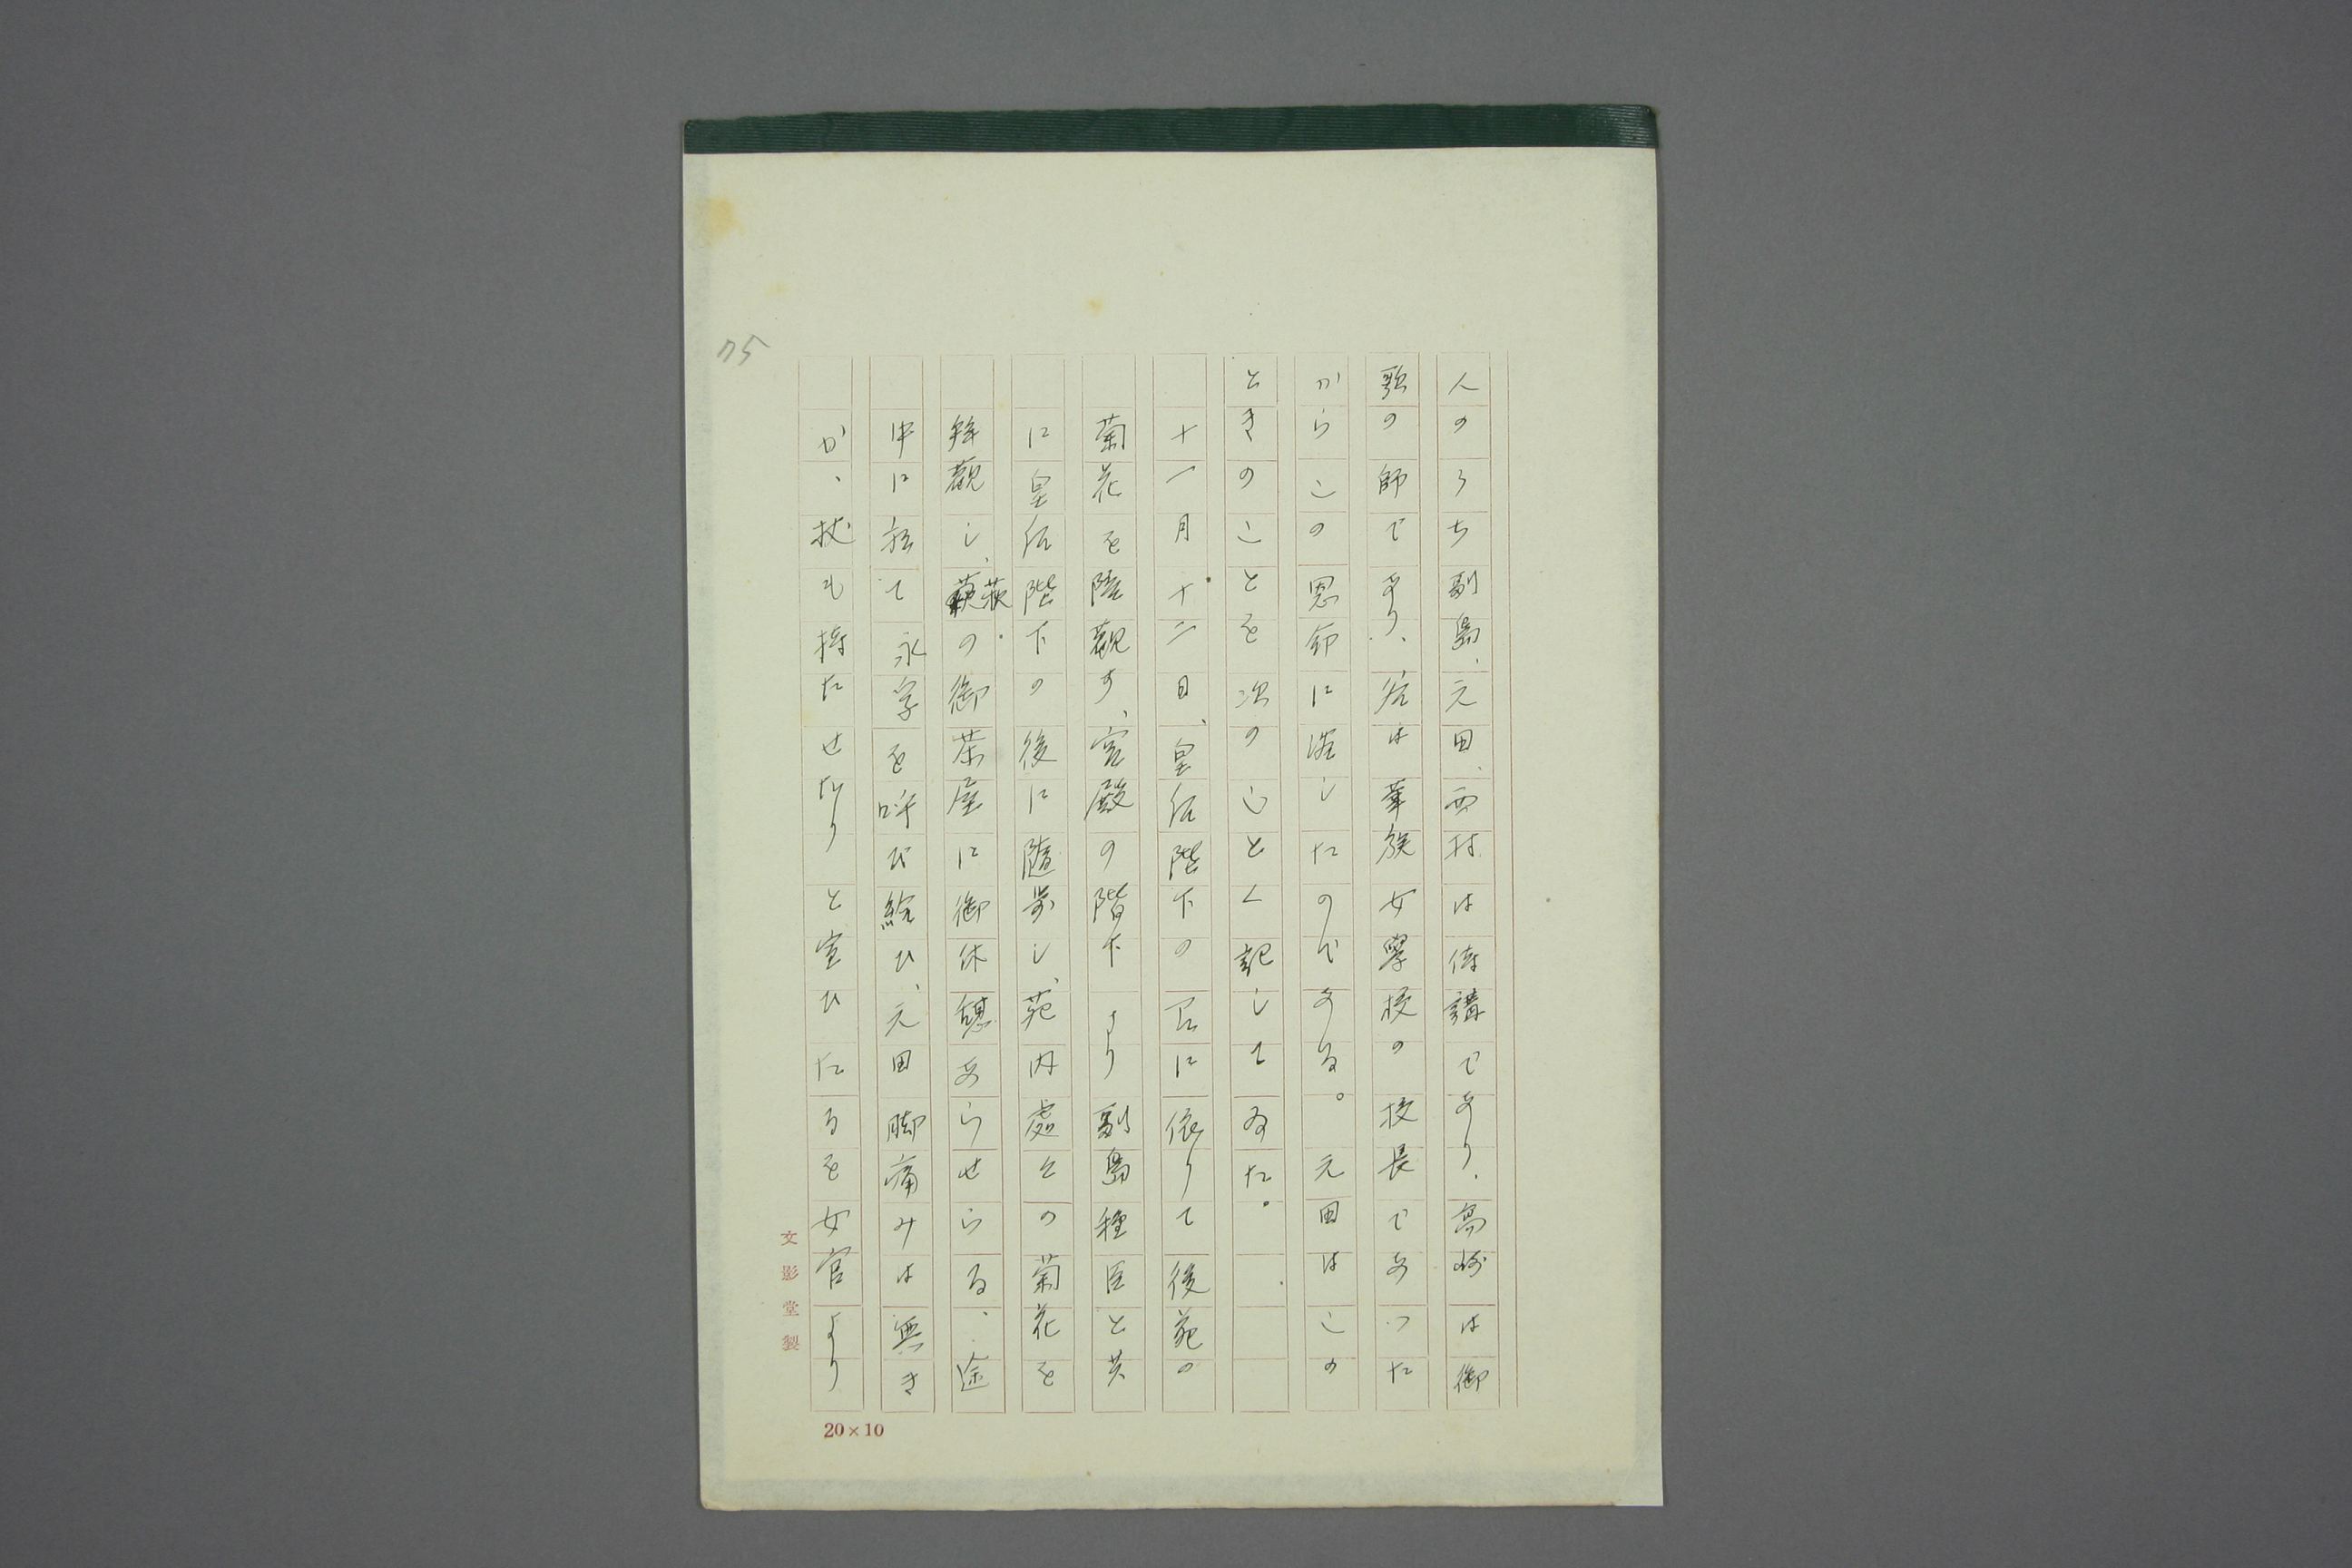 人のうち副島、元田、西村は侍講であり、高崎は御
歌の師であり、谷は華族女學校の校長であつた
からこの恩命に浴したのである。元田はこの
ときのことを次のじとく記してゐた。
十一月十二日、皇后陛下の召に依りて後苑の
菊花を陪觀す、宮殿の階下より副島種臣と共
に皇后陛下の後に隨歩し、苑内處々の菊花を
拜觀し、萩の御茶屋に御休憩あらせらる、途
中に於て永孚を呼び給ひ、元田脚痛みは無き
か、杖も持たせたりと宣ひたるを女官より
75
文影堂製
20×10